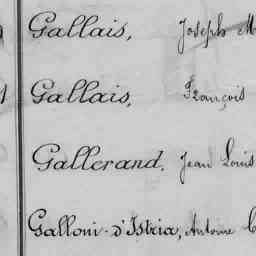 Gallais, Joseph M
Gallais, François
Gallerand, Jean Louis
Galloni-d'Istria, Antoine